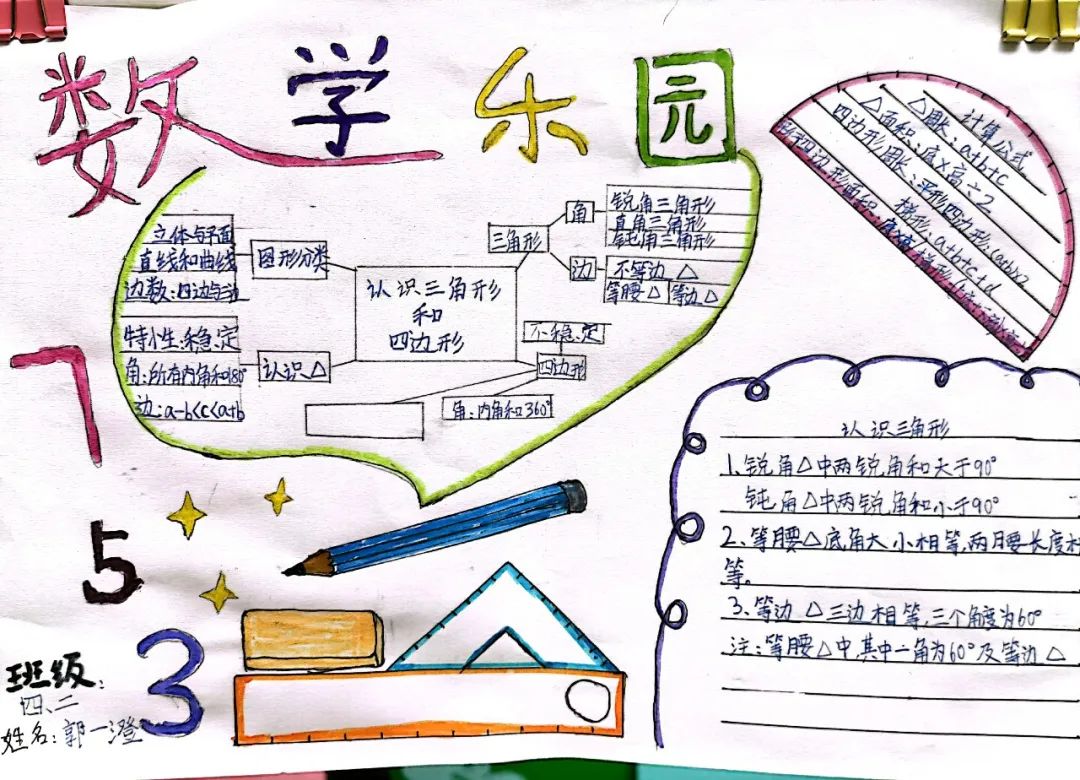 数学乐园
立体与平面
直线和曲线
边数:四边与三边
图形分类
特性:稳定
角:所有内角和180°
边:a-b<c<a+b
认识△
认识三角形
和
四边形
三角形
角
锐角三角形
直角三角形
钝角三角形
边
不等边△
等腰△
等边△
不稳定
四边形
角:内角和360°
计算公式
△周长:a+b+c
△面积:底×高÷2
四边形周长:平形四边形:(a+b)×2
梯形:a+b+c+d
四边形面积:
认识三角形
1、锐角△中两锐角和大于90°
钝角△中两锐角和小于90°
2、等腰△底角大小相等,两月要长度相
等。
3、等边△三边相等,三个角度为60°
注:等腰△中其中一角为60°及等边△
7
5
3
班级:
四、二
姓名:郭一澄